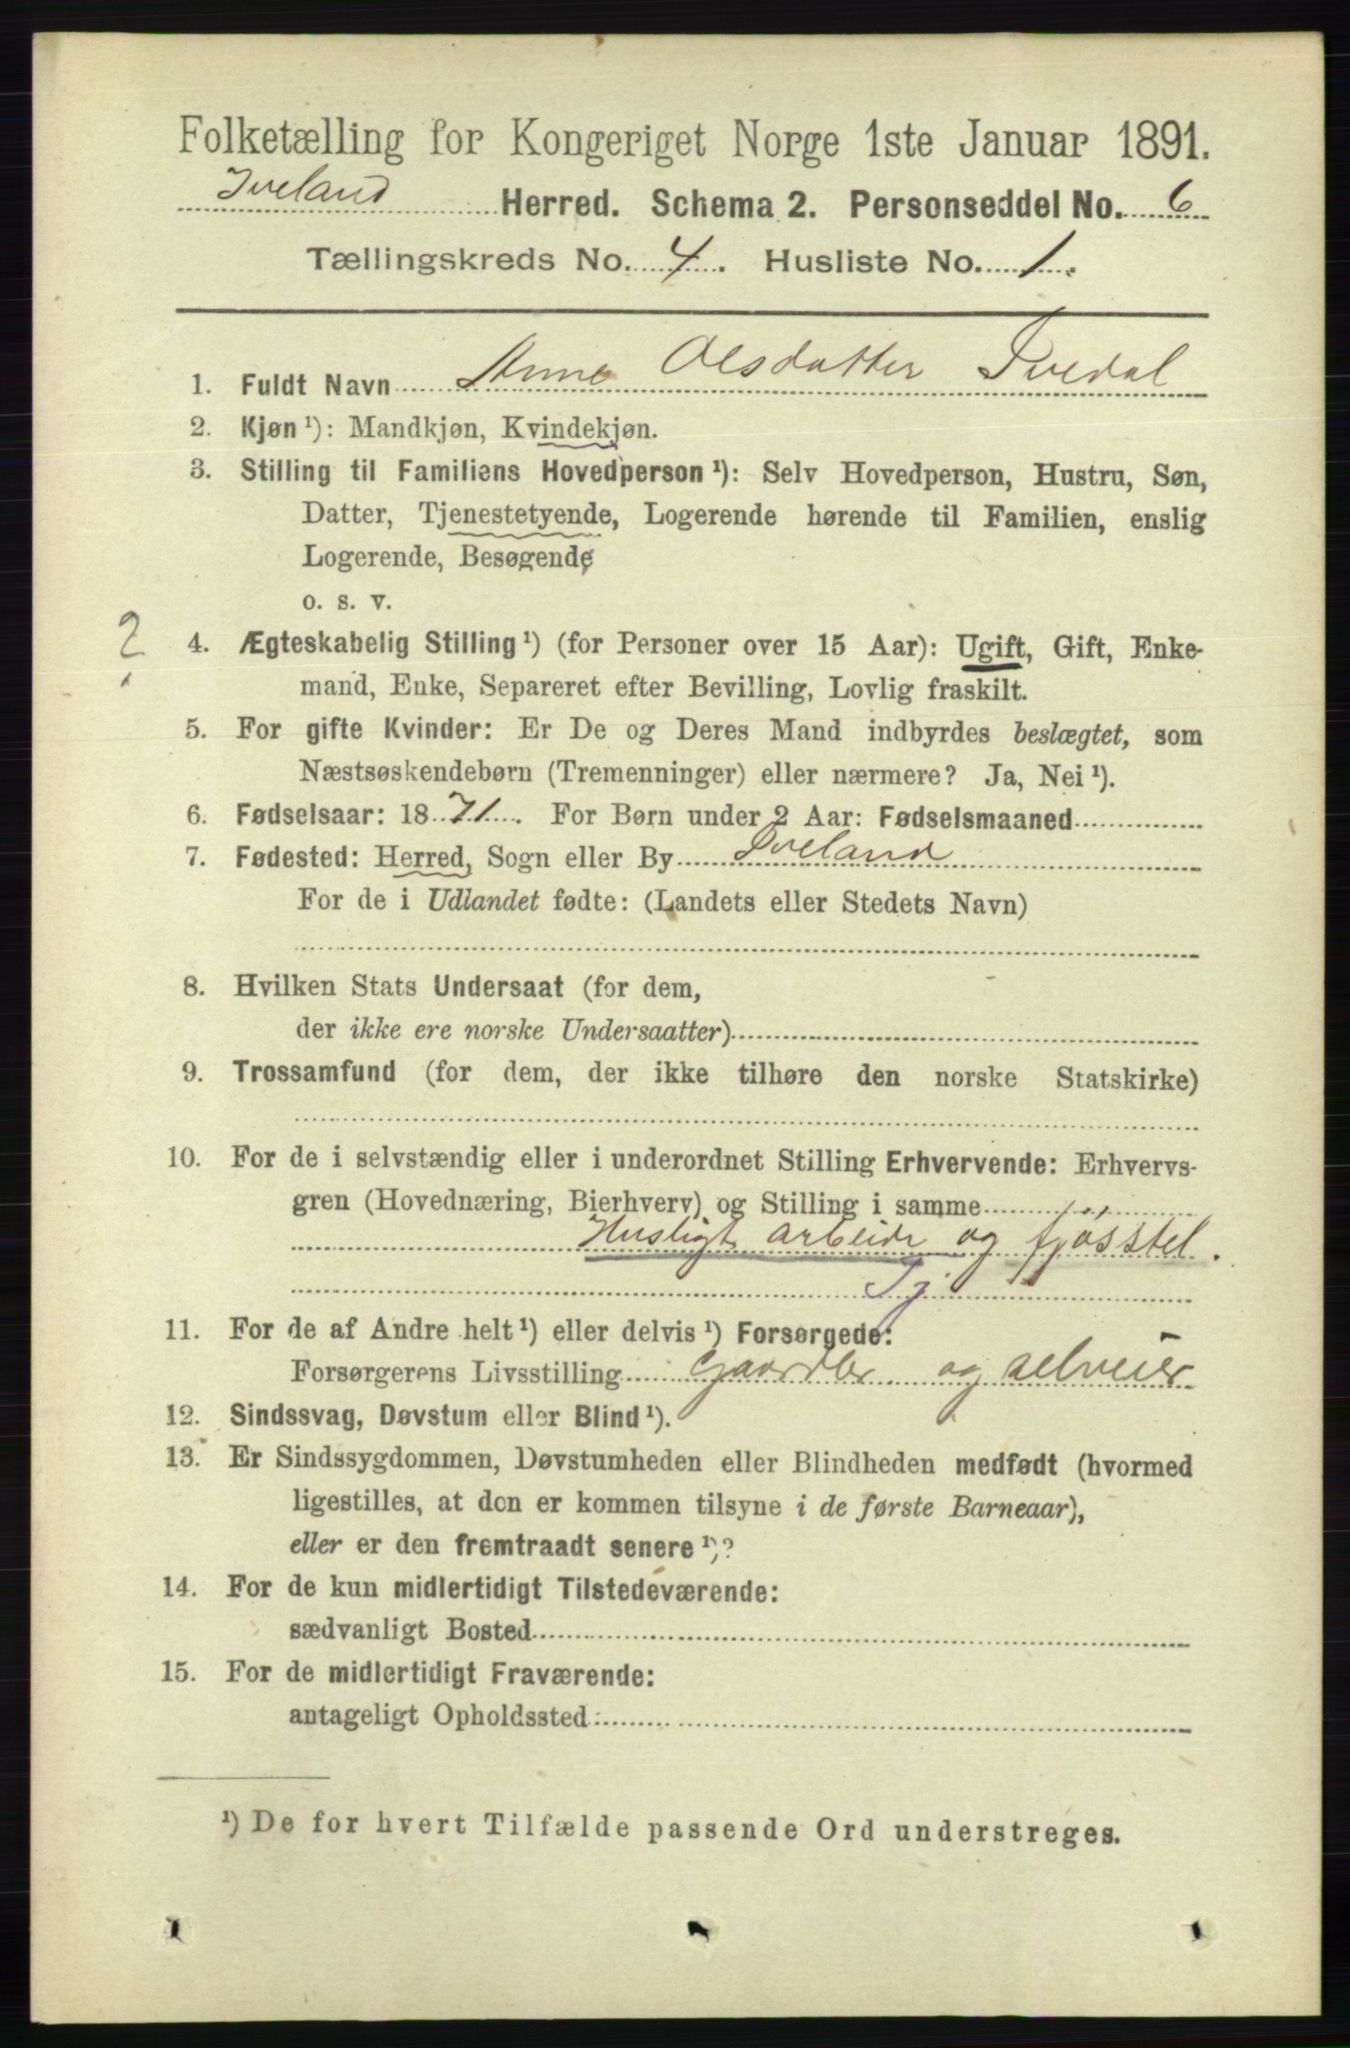 Folketælling for Kongeriget Norge 1ste Januar 1891.
Iveland Herred. Schema 2. Personseddel No. 6
Tællingskreds No. 4. Husliste No. 1.
1. Fuldt Navn Anne Olsdatter Ivedal
2. Kjøn ¹): Mandkjøn, Kvindekjøn.
3. Stilling til Familiens Hovedperson ¹): Selv Hovedperson, Hustru, Søn,
Datter, Tjenestetyende, Logerende hørende til Familien, enslig
Logerende, Besøgende
o. s. v.
2
4. Ægteskabelig Stilling ¹) (for Personer over 15 Aar): Ugift, Gift, Enke-
mand, Enke, Separeret efter Bevilling, Lovlig fraskilt.
5. For gifte Kvinder: Er De og Deres Mand indbyrdes beslægtet, som
Næstsøskendebørn (Tremenninger) eller nærmere? Ja, Nei ¹).
6. Fødselsaar: 1871. For Børn under 2 Aar: Fødselsmaaned
7. Fødested: Herred, Sogn eller By Iveland
For de i Udlandet fødte: (Landets eller Stedets Navn)
8. Hvilken Stats Undersaat (for dem,
der ikke ere norske Undersaatter)
9. Trossamfund (for dem, der ikke tilhøre den norske Statskirke)
10. For de i selvstændig eller i underordnet Stilling Erhvervende: Erhvervs-
gren (Hovednæring, Bierhverv) og Stilling i samme
Husligt arbeide og fjøsstel.
Tj
11. For de af Andre helt ¹) eller delvis ¹) Forsørgede:
Forsørgerens Livsstilling Gaardbr. og selveier
12. Sindssvag, Døvstum eller Blind ¹).
13. Er Sindssygdommen, Døvstumheden eller Blindheden medfødt (hvormed
ligestilles, at den er kommen tilsyne i de første Barneaar),
eller er den fremtraadt senere ¹)?
14. For de kun midlertidigt Tilstedeværende:
sædvanligt Bosted
15. For de midlertidigt Fraværende:
antageligt Opholdssted
¹) De for hvert Tilfælde passende Ord understreges.